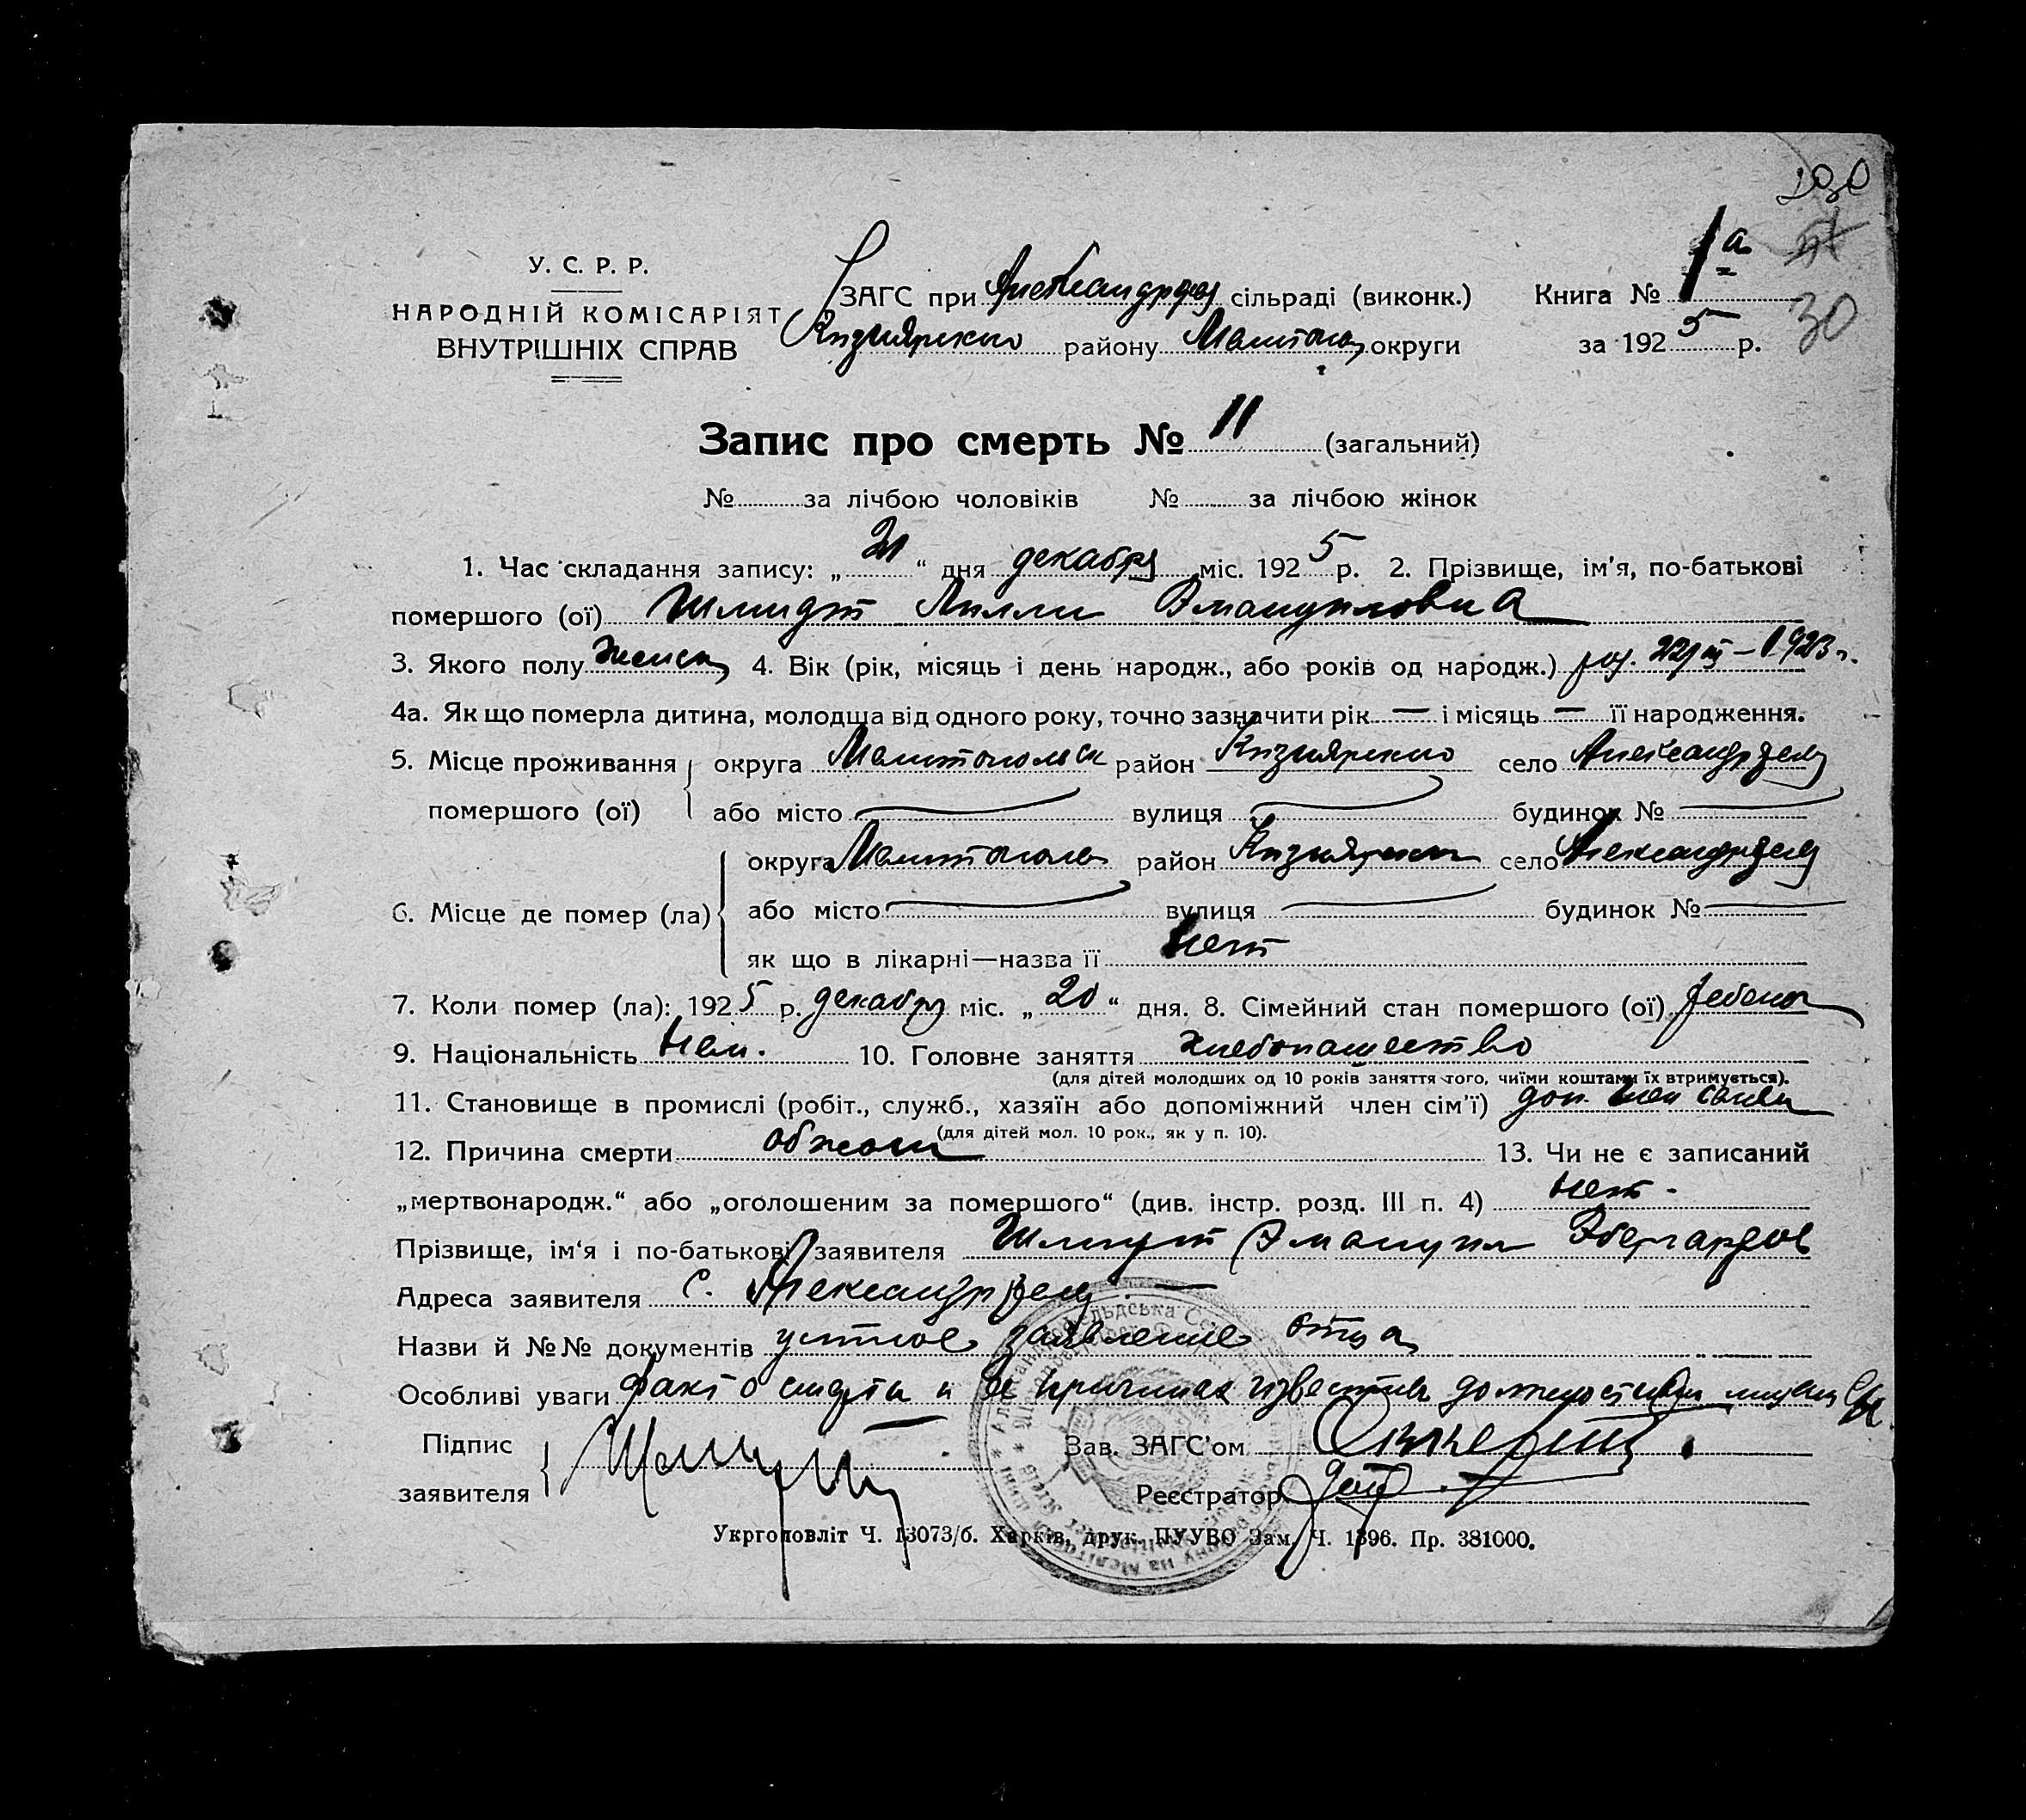 У. С. Р. Р.
НАРОДНІЙ КОМІСАРІЯТ
ВНУТРІШНІХ СПРАВ
ЗАГС при сільраді (виконк.)
району округи
Книга № 1а
за 1925 р.
30
Запис про смерть № 11 (загальний)
№ за лічбою чоловіків № за лічбою жінок
1. Час складання запису: „ “ дня декабря міс. 1925 р. 2. Прізвище, ім'я, по-батькові
помершого (ої) Шмидт Лилли Эмануиловна
3. Якого полу женск 4. Вік (рік, місяць і день народж., або років од народж.) 1923 г.
4а. Як що померла дитина, молодша від одного року, точно зазначити рік — і місяць — її народження.
5. Місце проживання округа Мелитопольск район Кизиярского село Александрфельд
помершого (ої) або місто вулиця будинок №
округа Мелитополь район село Александрфельд
6. Місце де помер (ла) або місто вулиця будинок №
як що в лікарні—назва її нет
7. Коли помер (ла): 1925 р. декабря міс. „20“ дня. 8. Сімейний стан помершого (ої) ребенок
9. Національність нем. 10. Головне заняття хлебопашество
(для дітей молодших од 10 років заняття того, чиїми коштами їх втримується).
11. Становище в промислі (робіт., служб., хазяїн або допоміжний член сім'ї) член семьи
(для дітей мол. 10 рок., як у п. 10).
12. Причина смерти 13. Чи не є записаний
„мертвонародж.“ або „оголошеним за помершого“ (див. інстр. розд. III п. 4) нет.
Прізвище, ім'я і по-батькові заявителя Шмидт Эмануил Эбергардов
Адреса заявителя с. Александрфельд —
Назви й №№ документів устное заявление отца
Особливі уваги Факт о смерти и ее причинах
Підпис
заявителя
Зав. ЗАГС'ом
Реєстратор
Укрголовліт Ч. 13073/б. Харків, друк. ПУУВО Зам. Ч. 1396. Пр. 381000.